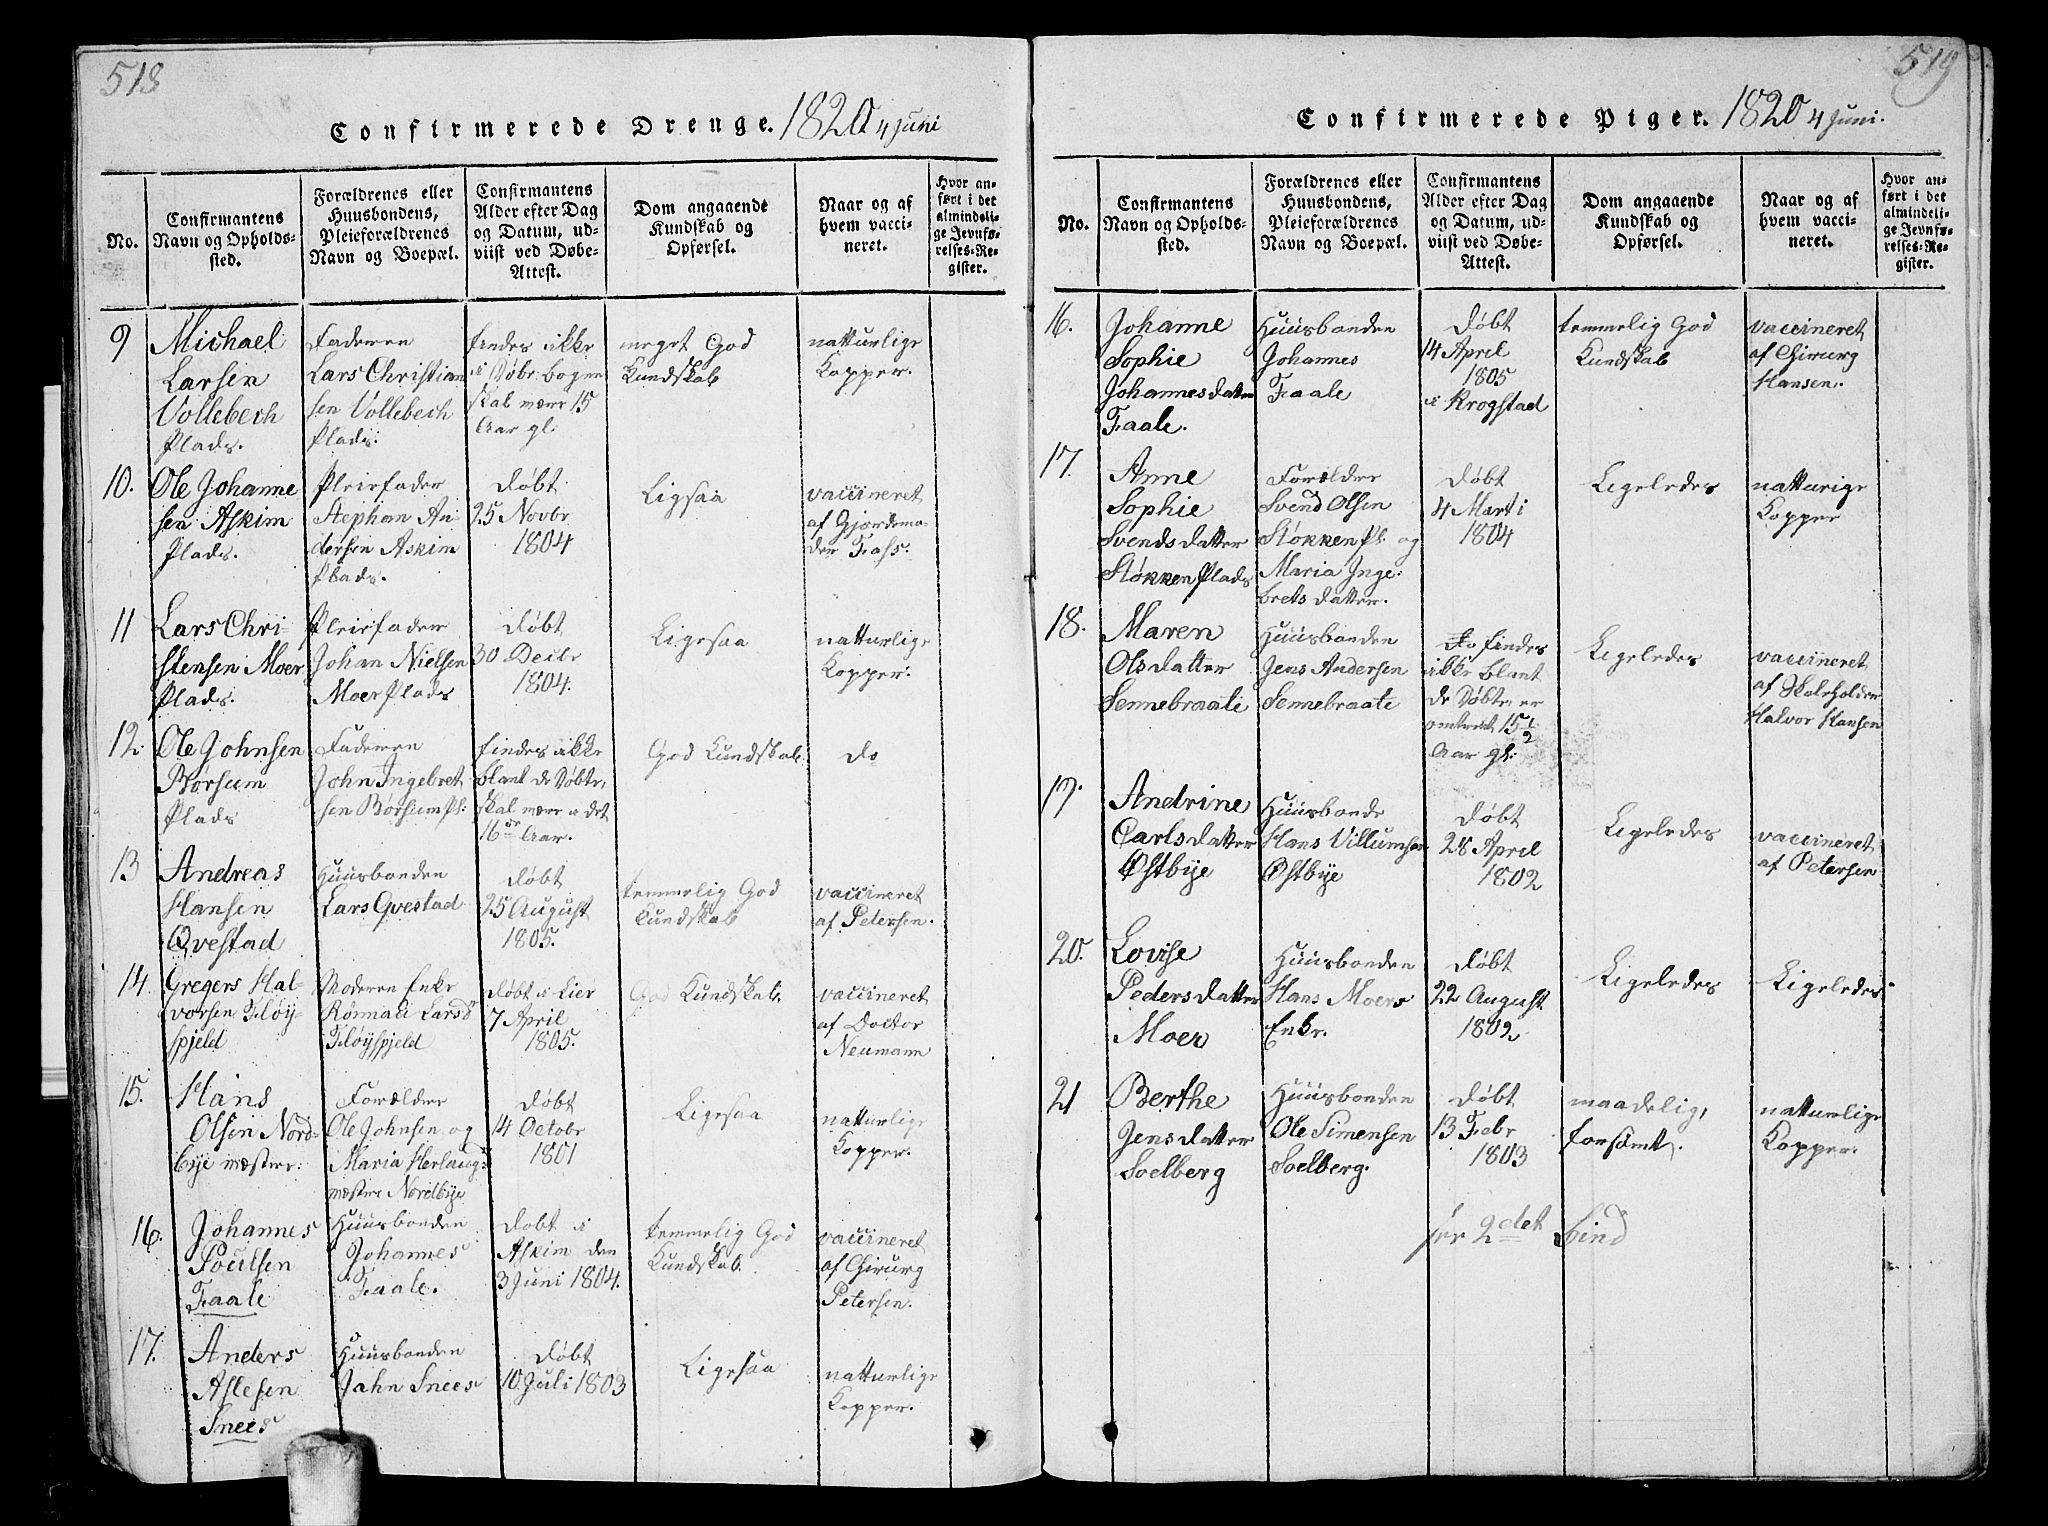 518
Confirmerede Drenge. 1820 4 Juni
No.
Confirmantens
Navn og Opholds-
sted.
Forældrenes eller
Huusbondens,
Pleieforældrenes
Navn og Boepæl.
Confirmantens
Alder efter Dag
og Datum, ud-
viist ved Døbe-
Attest.
Dom angaaende
Kundskab og
Opførsel.
Naar og af
hvem vacci-
neret.
Hvor an-
ført i det
almindeli-
ge Jevnfø-
relses-Re-
gister.
9
Michael
Larsen
Vollebech
Plads.
Faderen
Lars Christian
sen Vollebech
Plads.
findes ikke
i Døbe bogen
skal være 15
Aar gl.
meget God
Kundskab
natturlige
Kopper.
10.
Ole Johanne
sen Askim
Plads.
Pleiefader
Stephan An
dersen Askim
Plads.
Døbt
25 Novbr
1804
Ligesaa
vaccineret
af Gjordemo-
der Fass:
11
Lars Chri-
stensen Moer
Plads.
Pleiefader
Johan Nielsen
Moer Plads
Døbt
30 Decbr
1804.
Ligesaa
natturlige
Kopper.
12.
Ole Johnsen
Børsum
Plads
Faderen
John Ingebret
sen Børsum Pl:
findes ikke
blant de Døbte,
skal være i det
16de Aar.
God Kundskab
do
13
Andreas
Hansen
Qvestad
Huusbonden
Lars Qvestad
Døbt
25 August
1805.
temmelig God
Kundskab
vaccineret
af Petersen.
14.
Gregers Hal-
vorsen Fløy-
spjeld
Moderen Enke
Rönnau Larsd
Fløyspjeld
Døbt i Lier
7 April
1805.
God Kundskab.
vaccineret
af Doctor
Neumann
15.
Hans
Olsen Nord-
bye mæstre:
Forælder
Ole Johnsen og
Maria Herlaugsd
mæstre Nordbye
Døbt
14 Octobr
1801
Ligesaa
natturlige
Kopper.
16.
Johannes
Poulsen
Faale
Huusbonden
Johannes
Faale.
Døbt i
Askim den
3 Juni 1804.
temmelig God
Kundskab.
vaccineret
af Chirurg
Petersen.
17.
Anders
Aslesen
Snees
Huusbonden
Jahn Snees
Døbt
10 Juli 1803
Ligesaa
natturlige
Kopper.
519
Confirmerede Piger. 1820 4 Juni.
No.
Confirmantens
Navn og Opholds-
sted.
Forældrenes eller
Huusbondens,
Pleieforældrenes
Navn og Boepæl.
Confirmantens
Alder efter Dag
og Datum, ud-
viist ved Døbe-
Attest.
Dom angaaende
Kundskab og
Opførsel.
Naar og af
hvem vacci-
neret.
Hvor an-
ført i det
almindeli-
ge Jevnfø-
relses-Re-
gister.
16.
Johanne
Sophie
Johannesdatter
Faale.
Huusbonden
Johannes
Faale
Døbt
14 April
1805
i Krogstad
temmelig God
Kundskab
vaccineret
af Chirurg
Hansen.
17.
Anne
Sophie
Svendsdatter
Støkken Plads
Forælder
Svend Olsen
Støkken Pl. og
Maria Inge-
brets datter.
Døbt
4 Marti
1804
Ligeledes
natturige
Kopper
18.
Maren
Olsdatter
Sennebraate
Huusbonden
Jens Andersen
Sennebraate
findes
ikke blant
de Døbte, er
omtrent 15 1/2
Aar gl:
Ligeledes
vaccineret
af Skoleholder
Halvor Hansen
19.
Andrine
Carlsdatter
Østbye
Huusbonde
Hans Villumsen
Østbye
Døbt
28 April
1802
Ligeledes
vaccineret
af Petersen
20.
Lovise
Pedersdatter
Moer
Huusbonden
Hans Moers
Enke.
Døbt
22 August
1802
Ligeledes
Ligeledes
21
Berthe
Jensdatter
Soelberg
Huusbonden
Ole Simensen
Soelberg.
Døbt
13 Febr
1803
maadelig,
forsømt.
natturlige
Kopper.
see 2det Bind